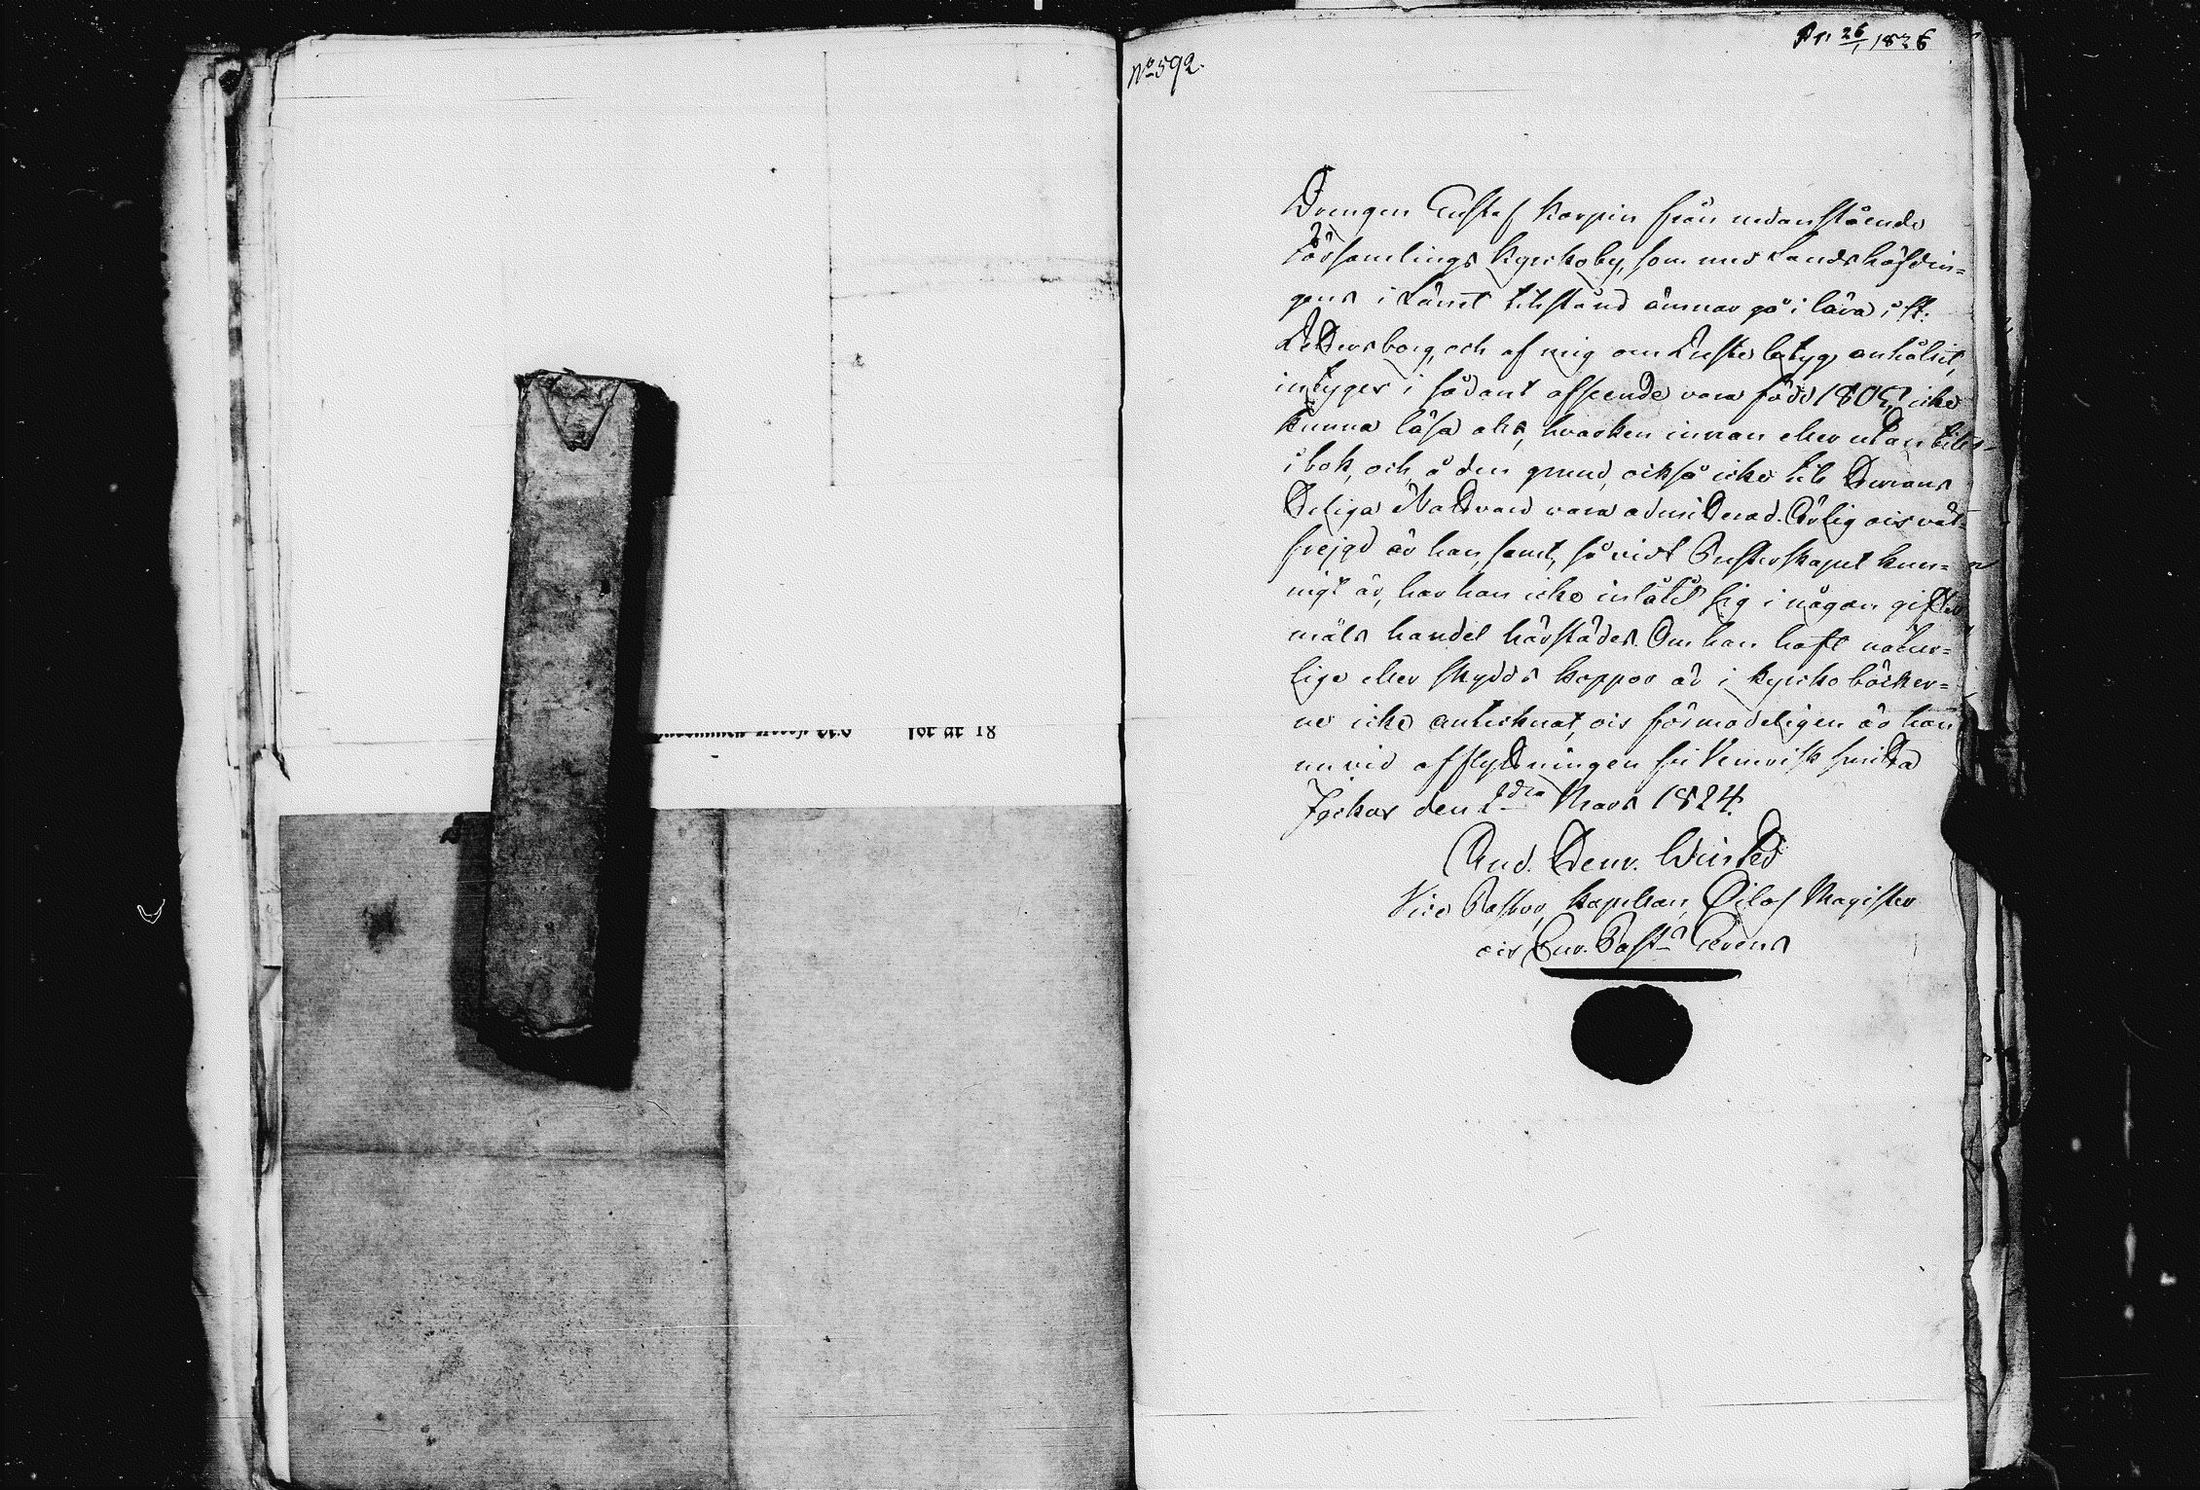 Nº 592.
Pr. 26/1 1826
Drengen Gustaf Karpin från nedanstående
Församlings Kyrkoby, som med Landshöfdin=
gens i Länet tillstånd ämnar gå i lära i St:
Petersborg, och af mig om Preste betyg anhållit,
intyges i sådant afseende vara född 1805, icke
kunna läsa alls, hvarken innan eller utan till
i bok, och å den grund, också icke till Herrans
Heliga Nattvard vara admitterad. Ärlig och väl=
frejgd är han, samt, så vidt Presterskapet kun=
nigt är, har han icke inlåtit sig i någon gifter
måls handel härstädes. Om han haft natur=
lige eller skydds koppor är i kyrko böcker=
ne icke antecknat, och förmodeligen är han
nu vid afflyttningen fri Venerisk smitta
Jockas den 2dra Mars 1824.
And. Henr.
Vice Pastor, Kapellan, Philos. Magister
och Cur. Past.s Gerens
lot at 18